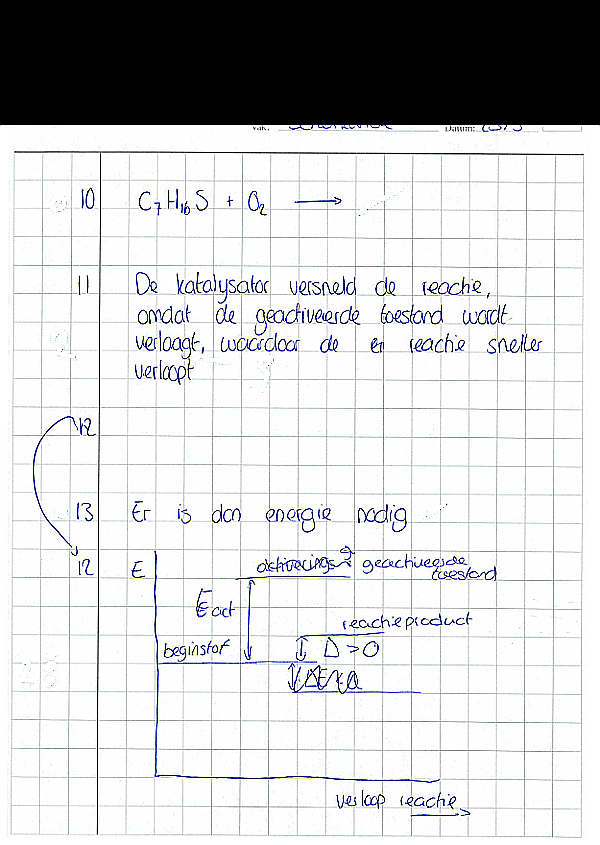 Vak:
Datum:
10 C₇H₁₆S + O₂ ⟶
11 De katalysator versneld de reactie,
omdat de geactiveerde toestand wordt
verlaagt, waardoor de er reactie sneller
verloopt
12
13 Er is dan energie nodig
12 E
activerings geactiveerde
toestand
Eact
reactieproduct
beginstof
Δ>0
verloop reactie